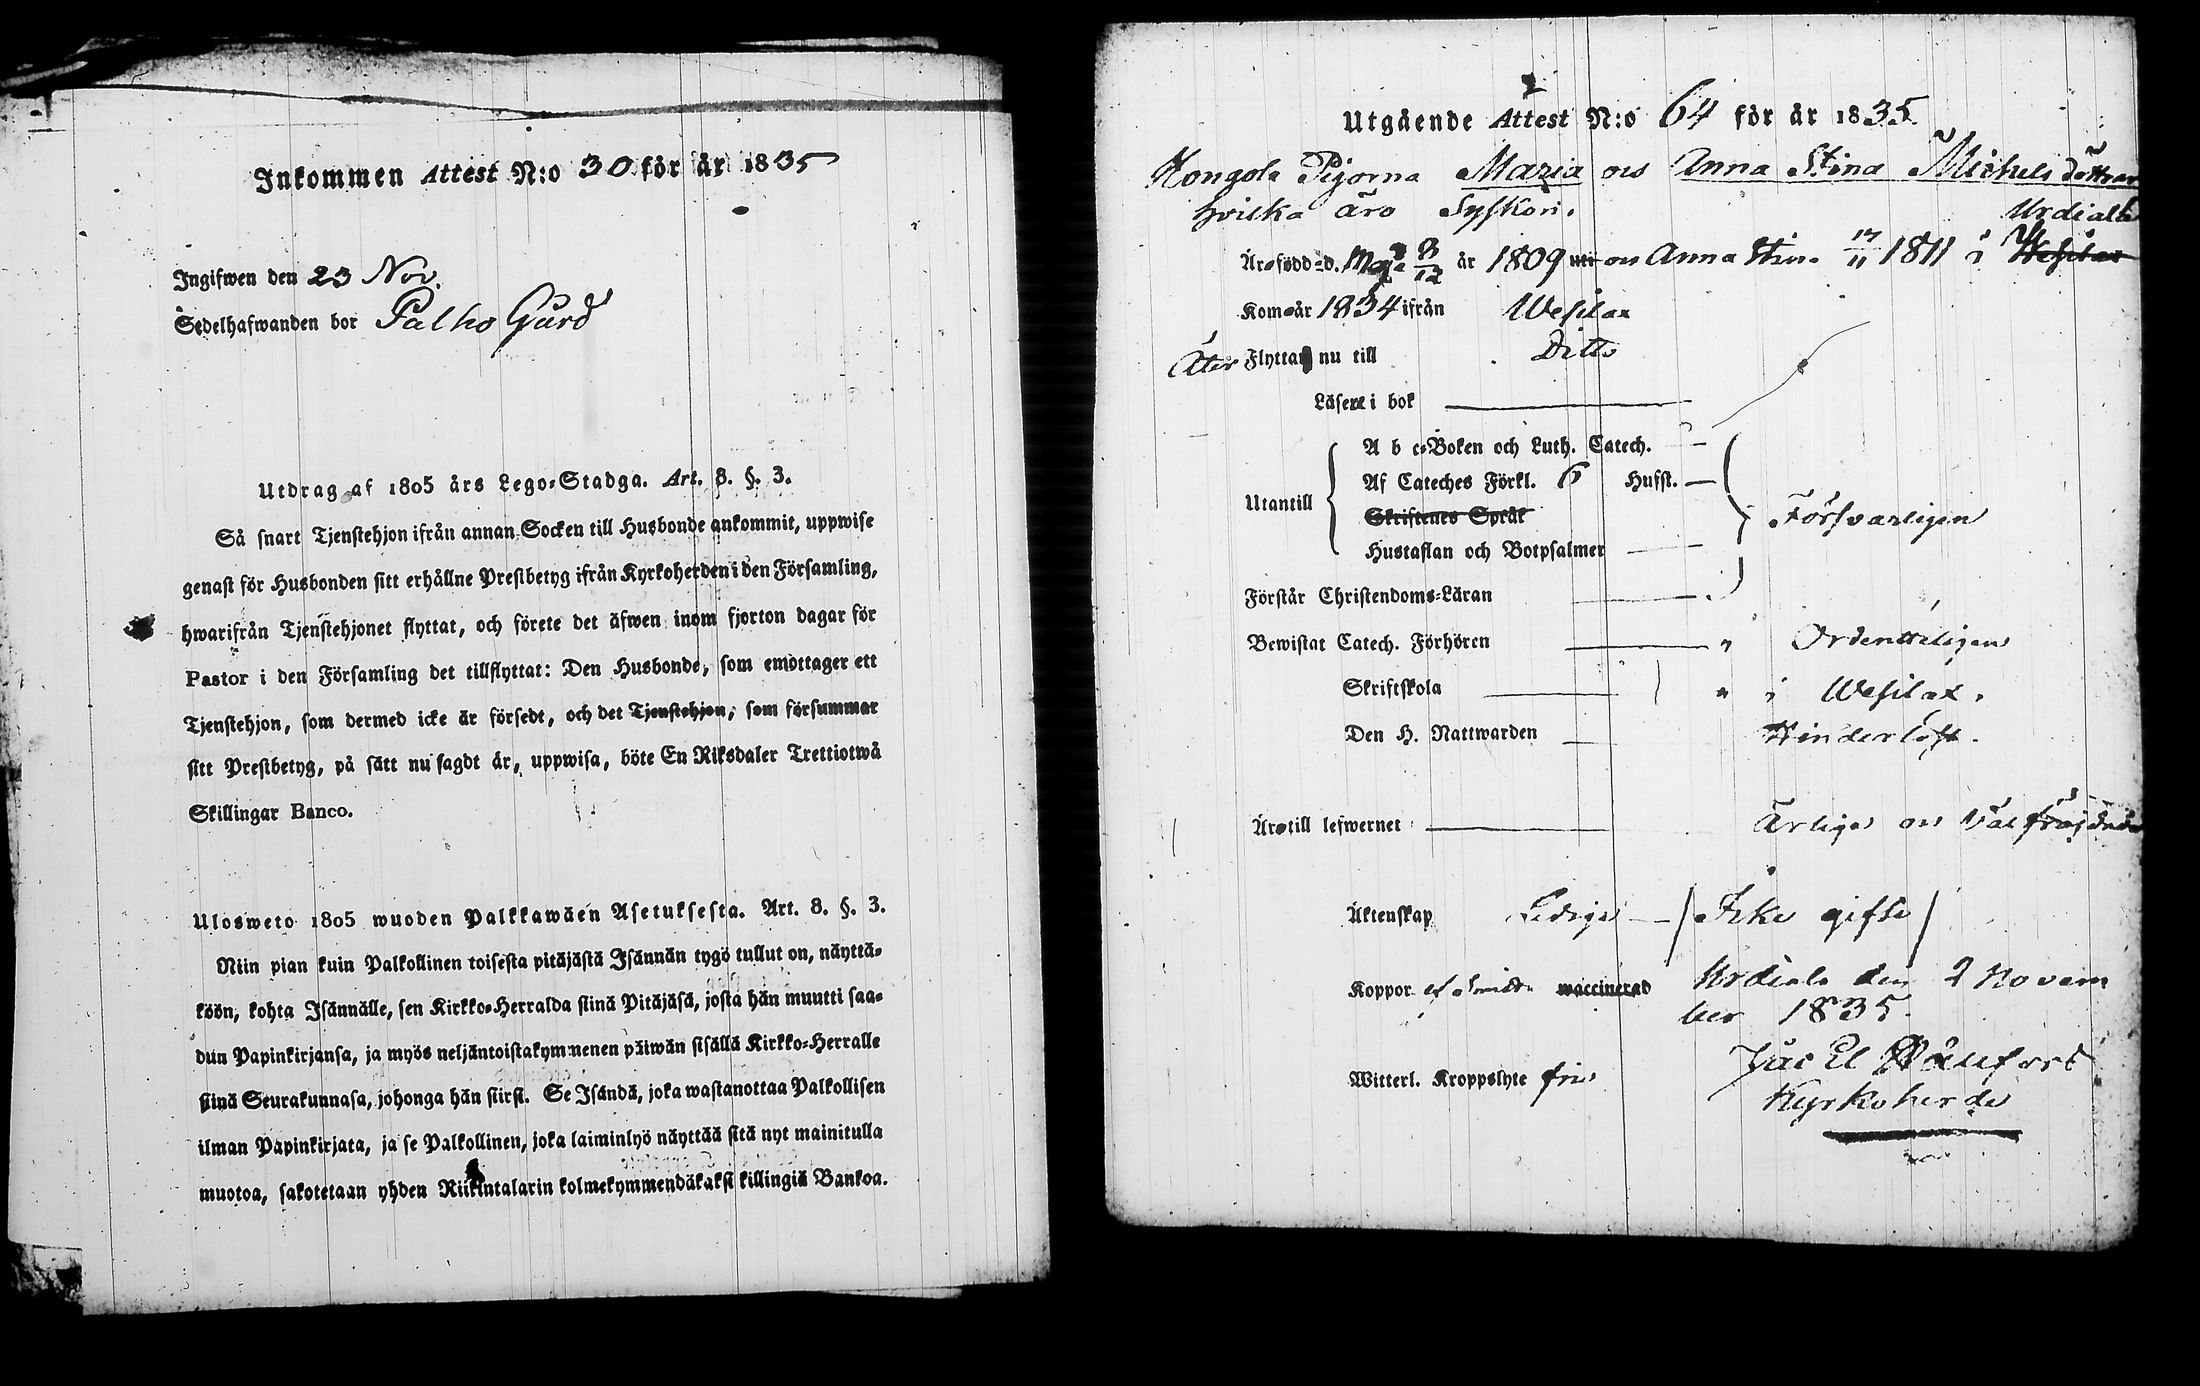 Inkommen Attest N:o 30 för år 1835
Ingifwen den 23 Nov.
Sedelhafwanden bor Palho Gård
Utdrag af 1805 års Lego-Stadga. Art. 8. §. 3.
Så snart Tjenstehjon ifrån annan Socken till Husbonde ankommit, uppwise
genast för Husbonden sitt erhållne Prestbetyg ifrån Kyrkoherden i den Församling,
hwarifrån Tjenstehjonet flyttat, och förete det äfwen inom fjorton dagar för
Pastor i den Församling det tillflyttat: Den Husbonde, som emottager ett
Tjenstehjon, som dermed icke är försedt, och det Tjenstehjon, som försummar
sitt Prestbetyg, på sätt nu sagdt är, uppwisa, böte En Riksdaler Trettiotwå
Skillingar Banco.
Ulosweto 1805 wuoden Palkkawäen Asetuksesta. Art. 8. §. 3.
Niin pian kuin Palkollinen toisesta pitäjästä Isännän tygö tullut on, näyttä-
köön, kohta Isännälle, sen Kirkko-Herralda siinä Pitäjäsä, josta hän muutti saa-
dun Papinkirjansa, ja myös neljäntoistakymmenen päiwän sisällä Kirkko-Herralle
siinä Seurakunnasa, johonga hän siirsi. Se Isändä, joka wastanottaa Palkollisen
ilman Papinkirjata, ja se Palkollinen, joka laiminlyö näyttää sitä nyt mainitulla
muotoa, sakotetaan yhden Riikintalarin kolmekymmendäkaksi killingiä Bankoa.
Utgående Attest N:o 64 för år 1835.
Hongola Pigorna Maria os Anna Stina Michels döttrar
hvilka äro Syskon.
Urdiala
Äro född d. Maja 8/12 år 1809 os Anna Stina 17/11 1811 i Wesilax
Kom år 1834 ifrån Wesilax
Åter Flyttar nu till Ditto
Läser i bok
A b c-Boken och Luth. Catech.
Utantill Af Cateches Förkl. 6 Hufst.
Skriftenes Språk
Försvarligen
Hustaflan och Botpsalmer
Förstår Christendoms-Läran
Bewistat Catech. Förhören " Ordenteligen
Skriftskola " i Wesilax.
Den H. Nattwarden Hinderlöst.
Äro till lefwernet Ärliga os Välfräjdade
Äktenskap Lediga / Icke gifta /
Koppor waccinerad Urdiala den 2 Novem
ber 1835.
Witterl. Kroppslyte fria
Jac El
Kyrkoherde